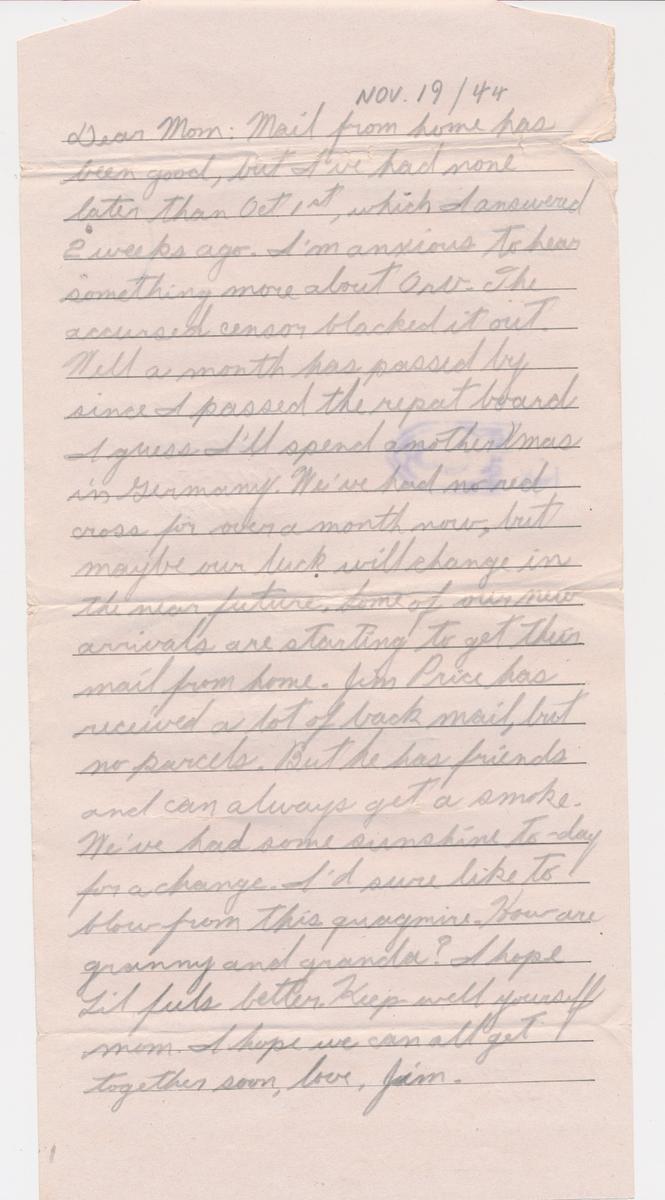 NOV. 19/44
Dear Mom: Mail from home has
been good, but I've had none
later than Oct 1st, which I answered
2 weeks ago. I'm anxious to hear
something more about Orv. The
accursed censor blacked it out.
Well a month has passed by
since I passed the repat board
I guess I'll spend another Xmas
in Germany. We've had no red
cross for over a month now, but
maybe our luck will change in
the near future. Some of our new
arrivals are starting to get their
mail from home. Jim Price has
received a lot of back mail, but
no parcels. But he has friends
and can always get a smoke.
We've had some sunshine to-day
for a change. I'd sure like to
blow from this quagmire. How are
granny and granda? I hope
Lil feels better. Keep well yourself
mom. I hope we can all get
together soon, love, Jim.